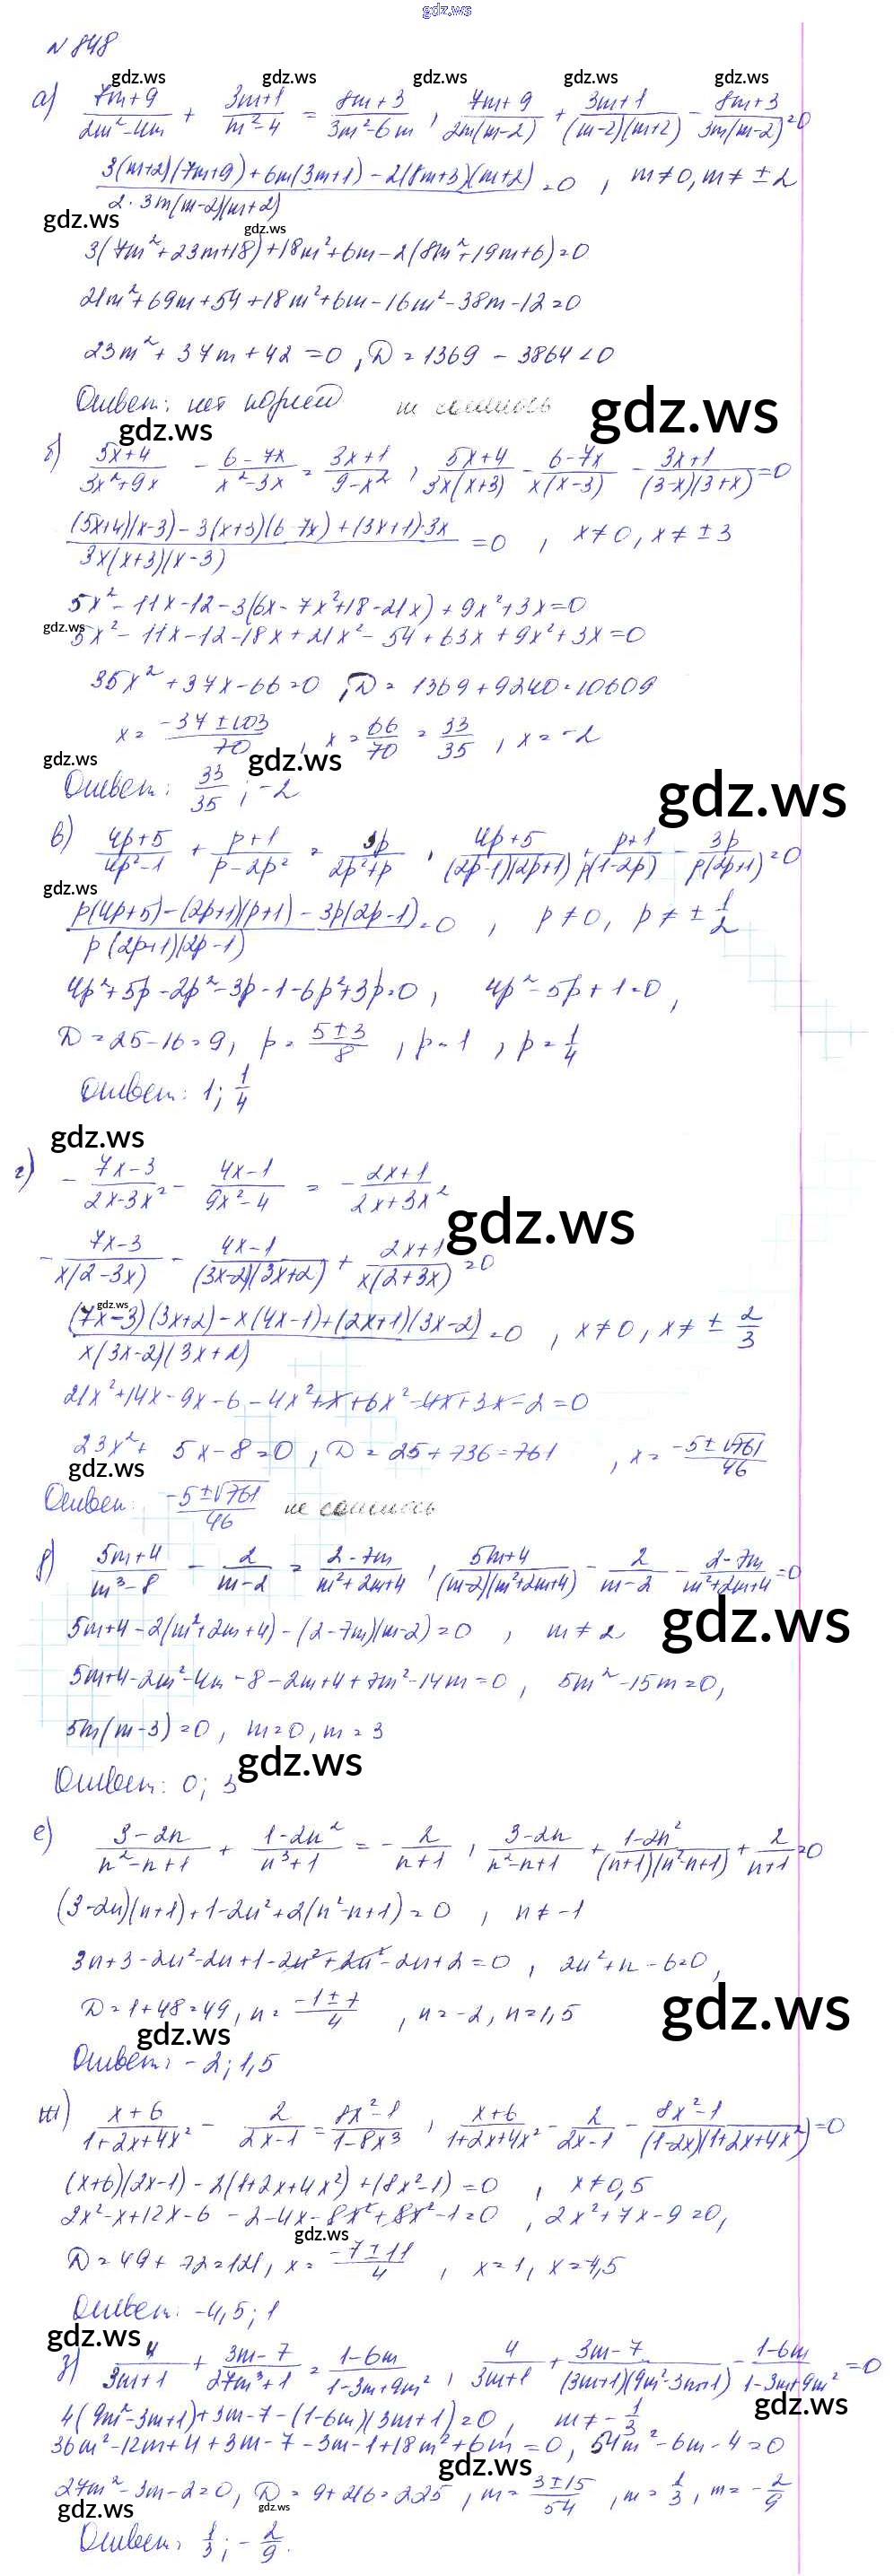 gdz.ws
N 848
gdz.ws gdz.ws gdz.ws gdz.ws gdz.ws
а) (7m+9)/(2m²-4m) + (3m+1)/(m²-4) = (8m+3)/(3m²-6m), (7m+9)/(2m(m-2)) + (3m+1)/((m-2)(m+2)) - (8m+3)/(3m(m-2)) = 0
(3(m+2)(7m+9)+6m(3m+1)-2(8m+3)(m+2))/(2·3m(m-2)(m+2)) = 0, m≠0, m≠±2
gdz.ws gdz.ws
3(7m²+23m+18)+18m²+6m-2(8m²+19m+6)=0
21m²+69m+54+18m²+6m-16m²-38m-12=0
23m²+37m+42=0, D=1369-3864<0
Ответ: нет корней не сошлось gdz.ws
gdz.ws
б) (5x+4)/(3x²+9x) - (6-7x)/(x²-3x) = (3x+1)/(9-x²), (5x+4)/(3x(x+3)) - (6-7x)/(x(x-3)) - (3x+1)/((3-x)(3+x)) = 0
((5x+4)(x-3)-3(x+3)(6-7x)+(3x+1)·3x)/(3x(x+3)(x-3)) = 0, x≠0, x≠±3
5x²-11x-12-3(6x-7x²+18-21x)+9x²+3x=0
gdz.ws
5x²-11x-12-18x+21x²-54+63x+9x²+3x=0
35x²+37x-66=0, D=1369+9240=10609
x=(-37±103)/70, x=66/70=33/35, x=-2
gdz.ws gdz.ws
Ответ: 33/35; -2 gdz.ws
в) (4p+5)/(4p²-1) + (p+1)/(p-2p²) = 3p/(2p²+p), (4p+5)/((2p-1)(2p+1)) + (p+1)/(p(1-2p)) - 3p/(p(2p+1)) = 0
gdz.ws
(p(4p+5)-(2p+1)(p+1)-3p(2p-1))/(p(2p+1)(2p-1)) = 0, p≠0, p≠±1/2
4p²+5p-2p²-3p-1-6p²+3p=0, 4p²-5p+1=0,
D=25-16=9, p=(5±3)/8, p=1, p=1/4
Ответ: 1; 1/4
gdz.ws
г) -(7x-3)/(2x-3x²) - (4x-1)/(9x²-4) = -(2x+1)/(2x+3x²)
gdz.ws
-(7x-3)/(x(2-3x)) - (4x-1)/((3x-2)(3x+2)) + (2x+1)/(x(2+3x)) = 0
gdz.ws
((7x-3)(3x+2)-x(4x-1)+(2x+1)(3x-2))/(x(3x-2)(3x+2)) = 0, x≠0, x≠±2/3
21x²+14x-9x-6-4x²+x+6x²-4x+3x-2=0
23x²+5x-8=0, D=25+736=761, x=(-5±√761)/46
gdz.ws
Ответ: (-5±√761)/46 не сошлось
д) (5m+4)/(m³-8) - 2/(m-2) = (2-7m)/(m²+2m+4), (5m+4)/((m-2)(m²+2m+4)) - 2/(m-2) - (2-7m)/(m²+2m+4) = 0
5m+4-2(m²+2m+4)-(2-7m)(m-2)=0, m≠2 gdz.ws
5m+4-2m²-4m-8-2m+4+7m²-14m=0, 5m²-15m=0,
5m(m-3)=0, m=0, m=3
gdz.ws
Ответ: 0; 3
е) (3-2n)/(n²-n+1) + (1-2n²)/(n³+1) = -2/(n+1), (3-2n)/(n²-n+1) + (1-2n²)/((n+1)(n²-n+1)) + 2/(n+1) = 0
(3-2n)(n+1)+1-2n²+2(n²-n+1)=0, n≠-1
3n+3-2n²-2n+1-2n²+2n²-2n+2=0, 2n²+n-6=0,
D=1+48=49, n=(-1±7)/4, n=-2, n=1,5 gdz.ws
gdz.ws
Ответ: -2; 1,5
ж) (x+6)/(1+2x+4x²) - 2/(2x-1) = (8x²-1)/(1-8x³), (x+6)/(1+2x+4x²) - 2/(2x-1) - (8x²-1)/((1-2x)(1+2x+4x²)) = 0
(x+6)(2x-1)-2(1+2x+4x²)+(8x²-1)=0, x≠0,5
2x²-x+12x-6-2-4x-8x²+8x²-1=0, 2x²+7x-9=0,
gdz.ws
D=49+72=121, x=(-7±11)/4, x=1, x=-4,5
Ответ: -4,5; 1
gdz.ws
з) 4/(3m+1) + (3m-7)/(27m³+1) = (1-6m)/(1-3m+9m²), 4/(3m+1) + (3m-7)/((3m+1)(9m²-3m+1)) - (1-6m)/(1-3m+9m²) = 0
gdz.ws
4(9m²-3m+1)+3m-7-(1-6m)(3m+1)=0, m≠-1/3
36m²-12m+4+3m-7-3m-1+18m²+6m=0, 54m²-6m-4=0
gdz.ws
27m²-3m-2=0, D=9+216=225, m=(3±15)/54, m=1/3, m=-2/9
gdz.ws gdz.ws
Ответ: 1/3; -2/9.